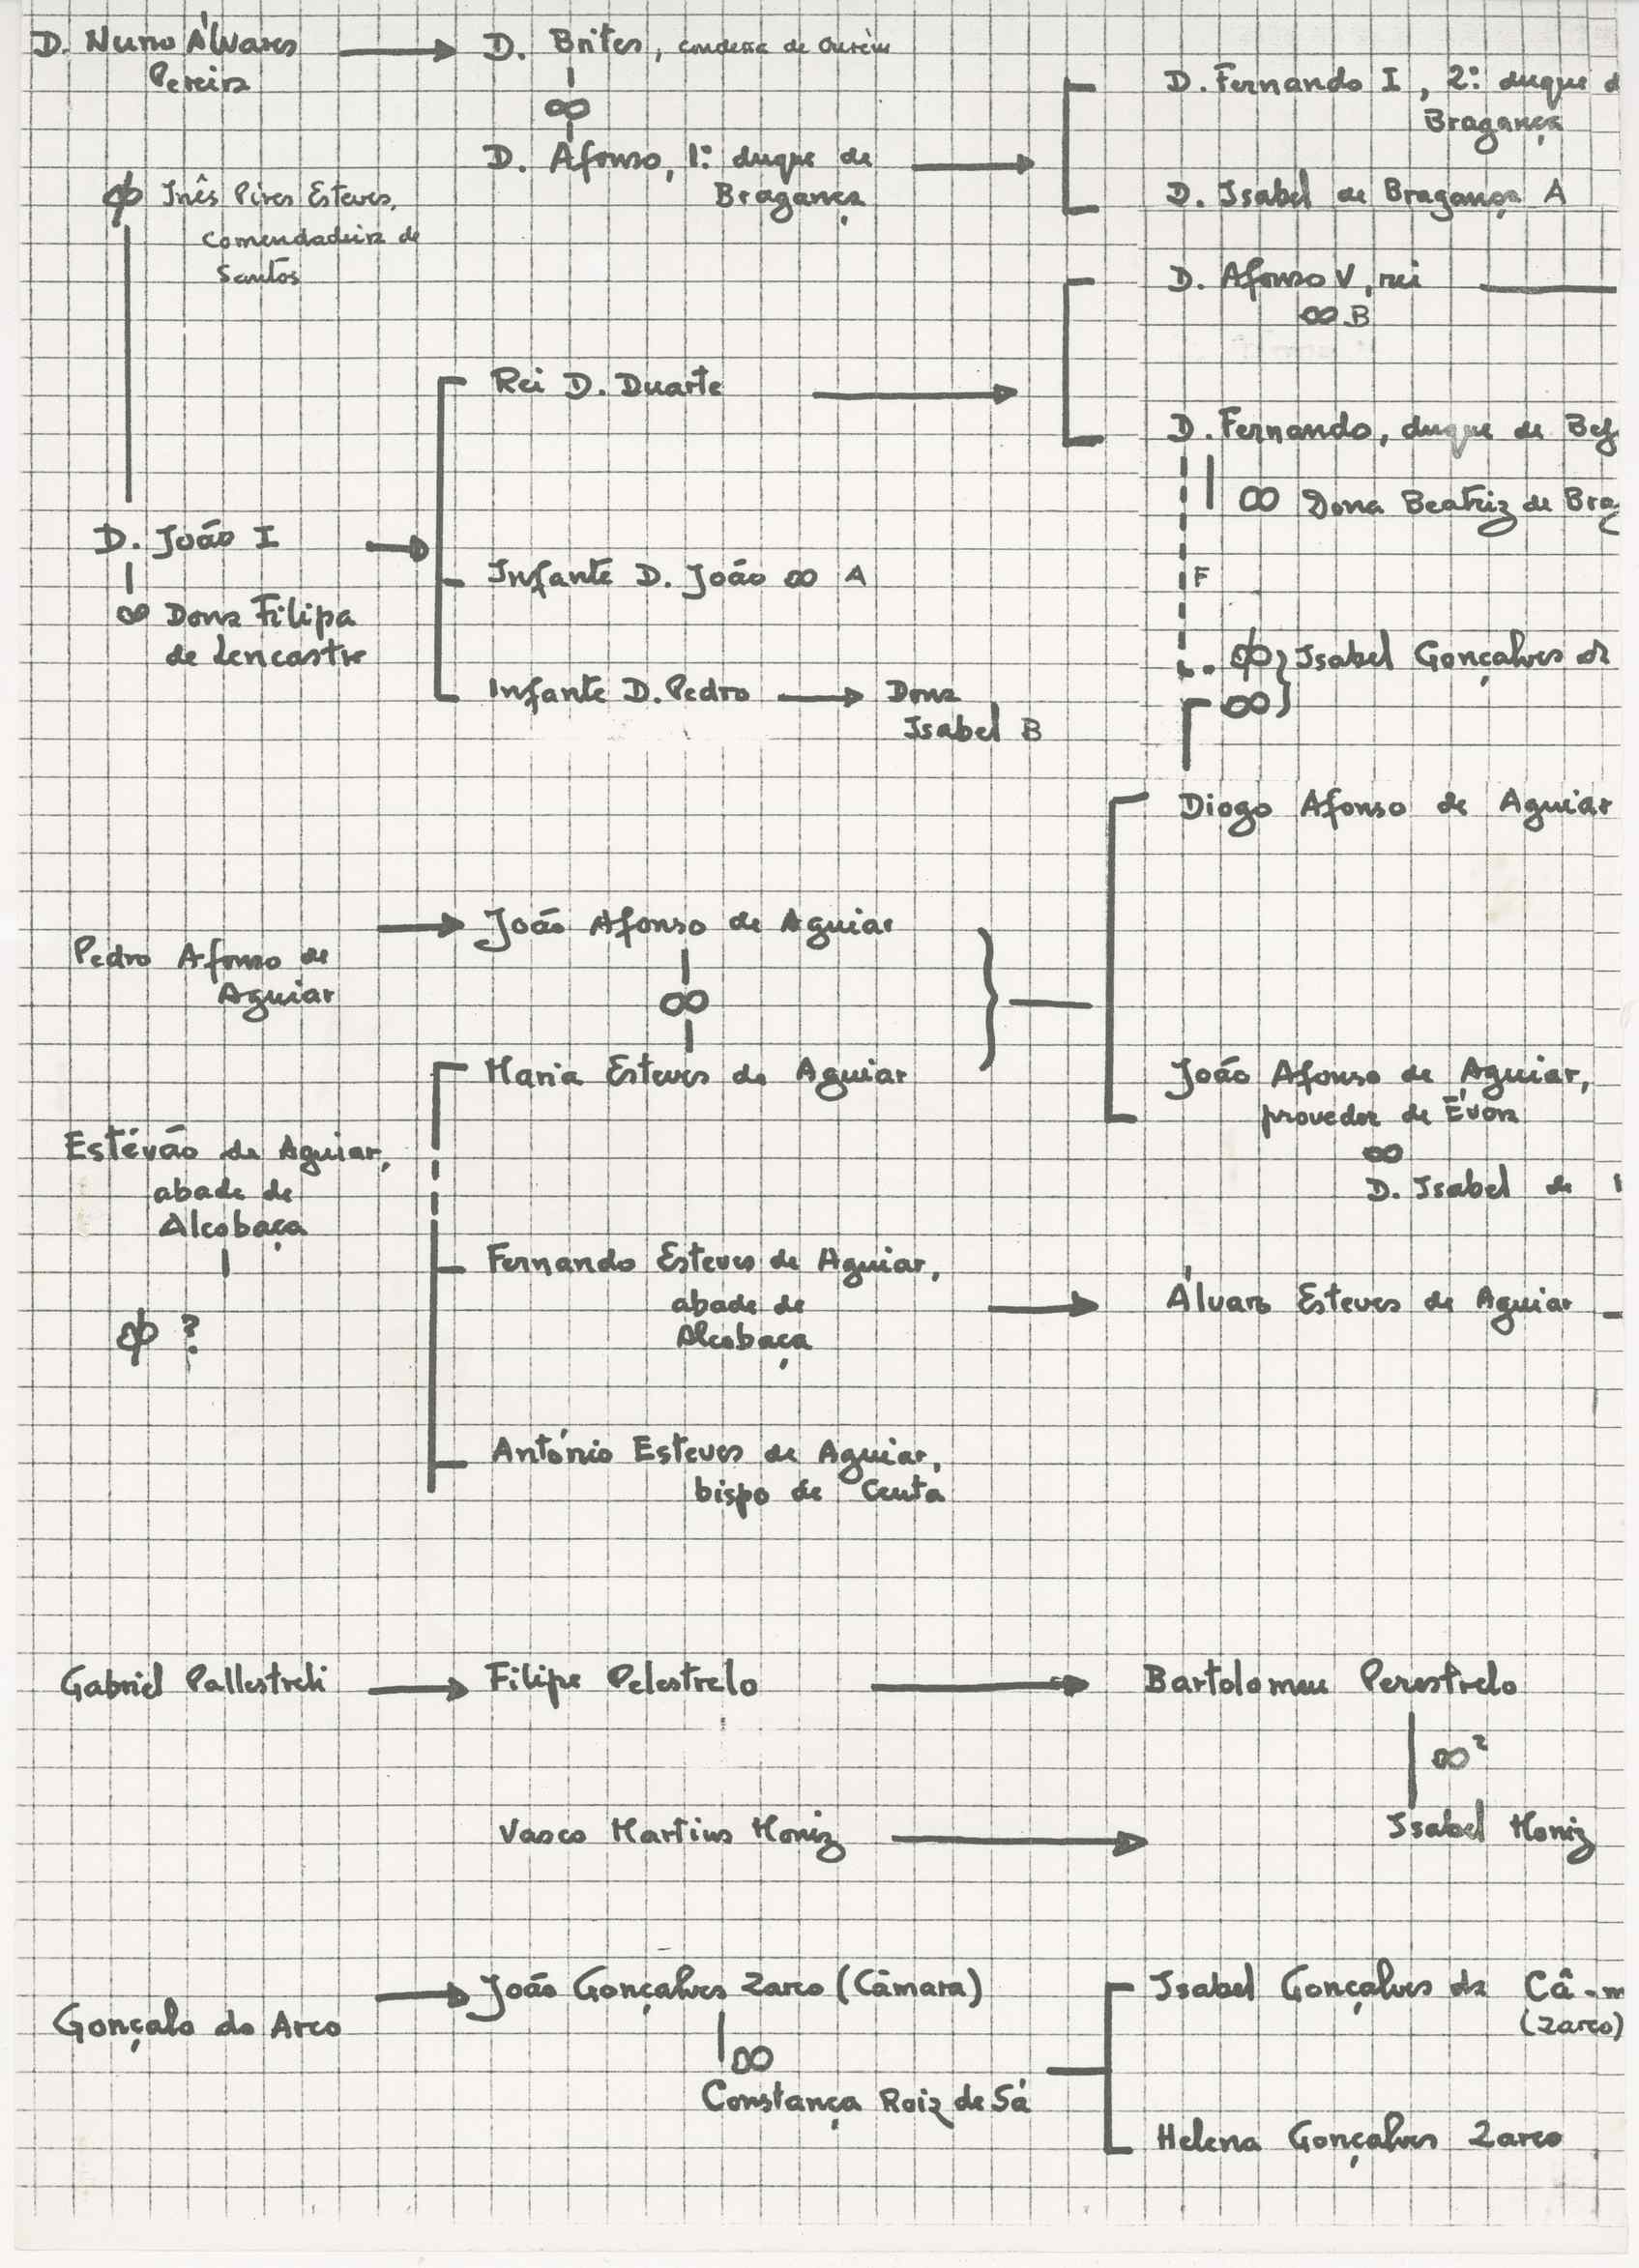 D. Nuno Álvares
Pereira
D. Brites, condessa de Ourém
∞
D. Afonso, 1º duque de
Bragança
D. Fernando I, 2º duque d
Bragança
D. Isabel de Bragança A
Inês Pires Esteves,
Comendadeira de
Santos
D. Afonso V, rei
∞ B
Rei D. Duarte
D. Fernando, duque de Bej
∞ Dona Beatriz de Brag
F
D. João I
∞ Dona Filipa
de Lencastre
Infante D. João ∞ A
Infante D. Pedro
Dona
Isabel B
Isabel Gonçalves
∞
Diogo Afonso de Aguiar
Pedro Afonso de
Aguiar
João Afonso de Aguiar
∞
Maria Esteves de Aguiar
João Afonso de Aguiar,
provedor de Évora
∞
D. Isabel de
Estêvão de Aguiar,
abade de
Alcobaça
?
Fernando Esteves de Aguiar,
abade de
Alcobaça
Álvaro Esteves de Aguiar
António Esteves de Aguiar,
bispo de Ceuta
Gabriel Pallestreli
Filipe Pelestrelo
Bartolomeu Perestrelo
∞²
Vasco Martins Moniz
Isabel Moniz
Gonçalo do Arco
João Gonçalves Zarco (Câmara)
∞
Constança Roiz de Sá
Isabel Gonçalves da Câ-m
(Zarco)
Helena Gonçalves Zarco